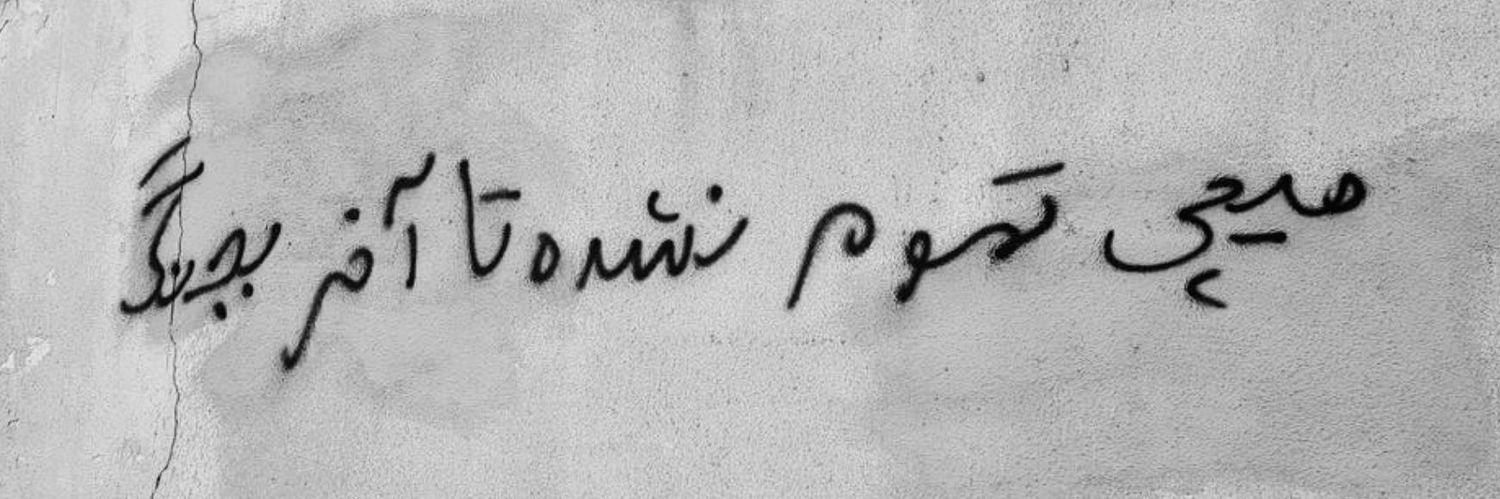 هیچی تموم نشده تا آخر بجنگ